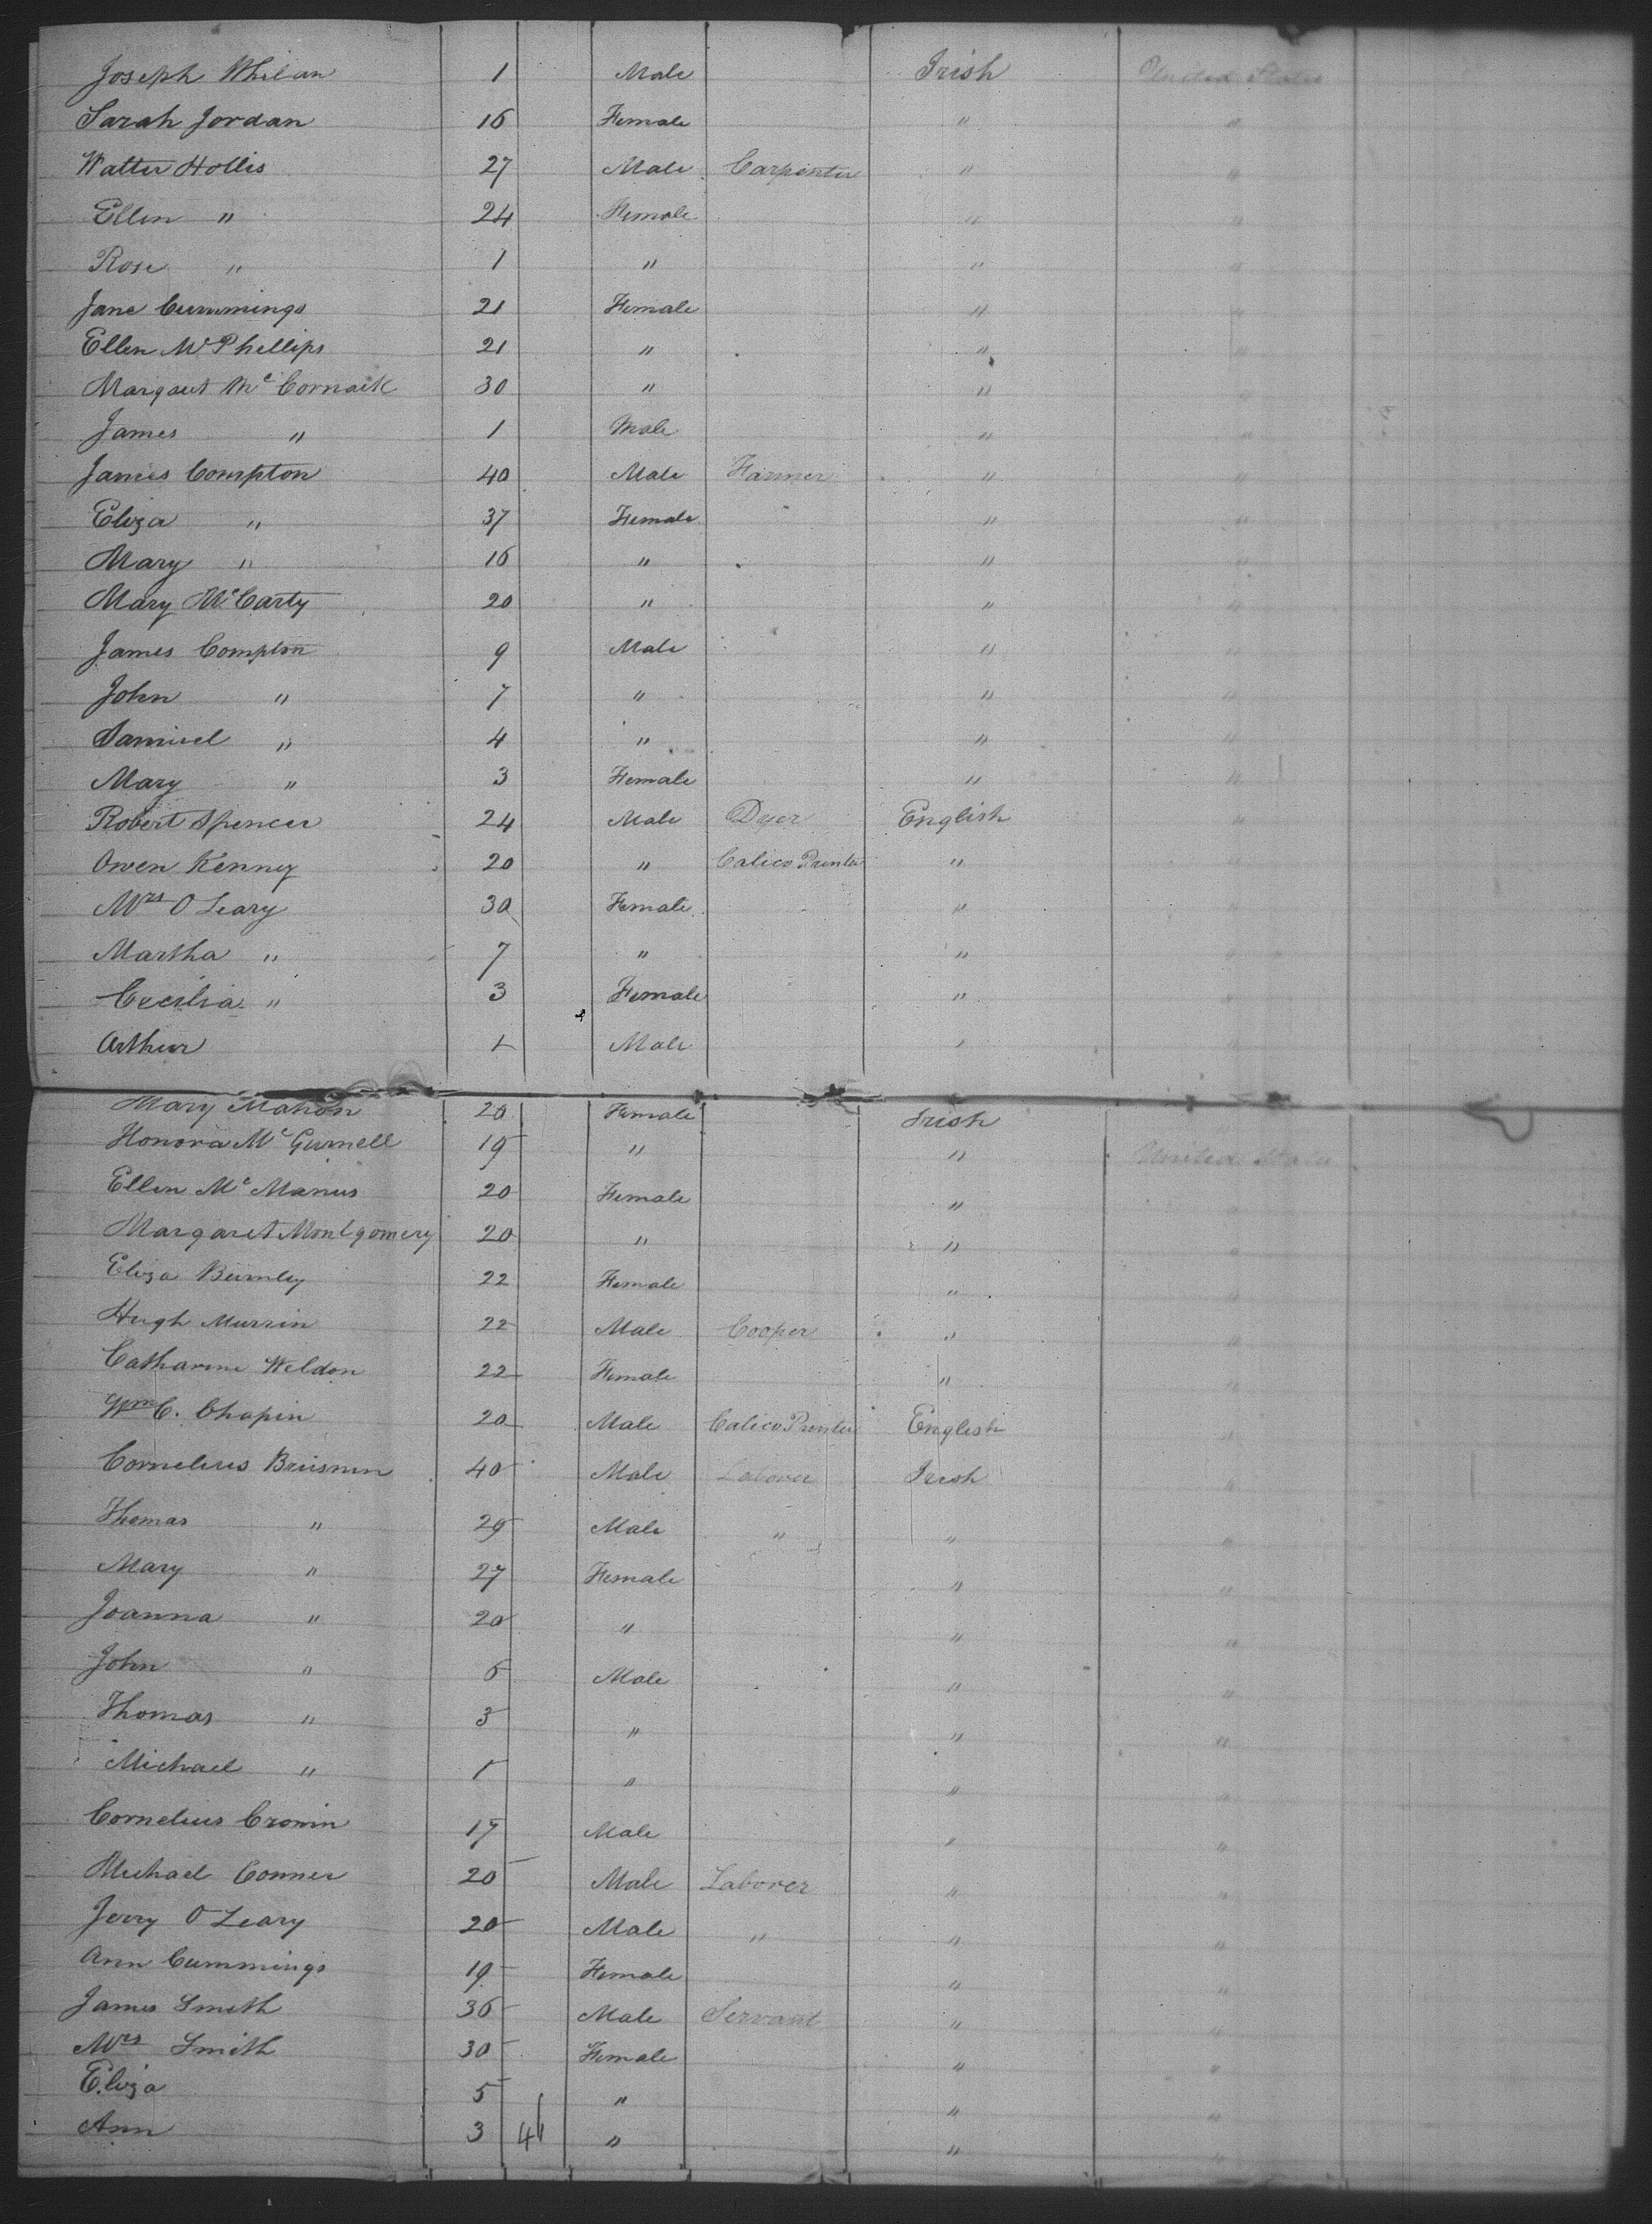 Joseph Whelan 1 Male Irish United States
Sarah Jordan 16 Female " "
Walter Hollis 27 Male Carpenter " "
Ellen " 24 Female " "
Rose " 1 " " "
Jane Cummings 21 Female " "
Ellen Mc Phellips 21 " " "
Margaret Mc Cormack 30 " " "
James " 1 Male " "
James Compton 40 Male Farmer " "
Eliza " 37 Female " "
Mary " 16 " " "
Mary McCarty 20 " " "
James Compton 9 Male " "
John " 7 " " "
Samuel " 4 " " "
Mary " 3 Female " "
Robert Spencer 24 Male Dyer English "
Owen Kenney 20 " Calico Printer " "
Mrs O Leary 30 Female " "
Martha " 7 " " "
Cecilia " 3 Female " "
Arthur 1 Male " "
Mary Mahon 20 Female Irish
Honora Mc Gurnell 19 " " United States
Ellen Mc Manus 20 Female " "
Margaret Montgomery 20 " " "
Eliza Burnley 22 Female " "
Hugh Murrin 22 Male Cooper " "
Catharine Weldon 22 Female " "
Wm C. Chapin 20 Male Calico Printer English "
Cornelius 40 Male Laborer Irish "
Thomas " 29 Male " " "
Mary " 27 Female " "
Joanna " 20 " " "
John " Male " "
Thomas " 3 " " "
Michael " 1 " " "
Cornelius Cronin 17 Male " "
Michael Conner 20 Male Laborer " "
Jerry O Leary 20 Male " " "
Ann Cummings 19 Female " "
James Smith 36 Male Servant " "
Mrs Smith 30 Female " "
Eliza 5 " " "
Ann 3 46 " " "